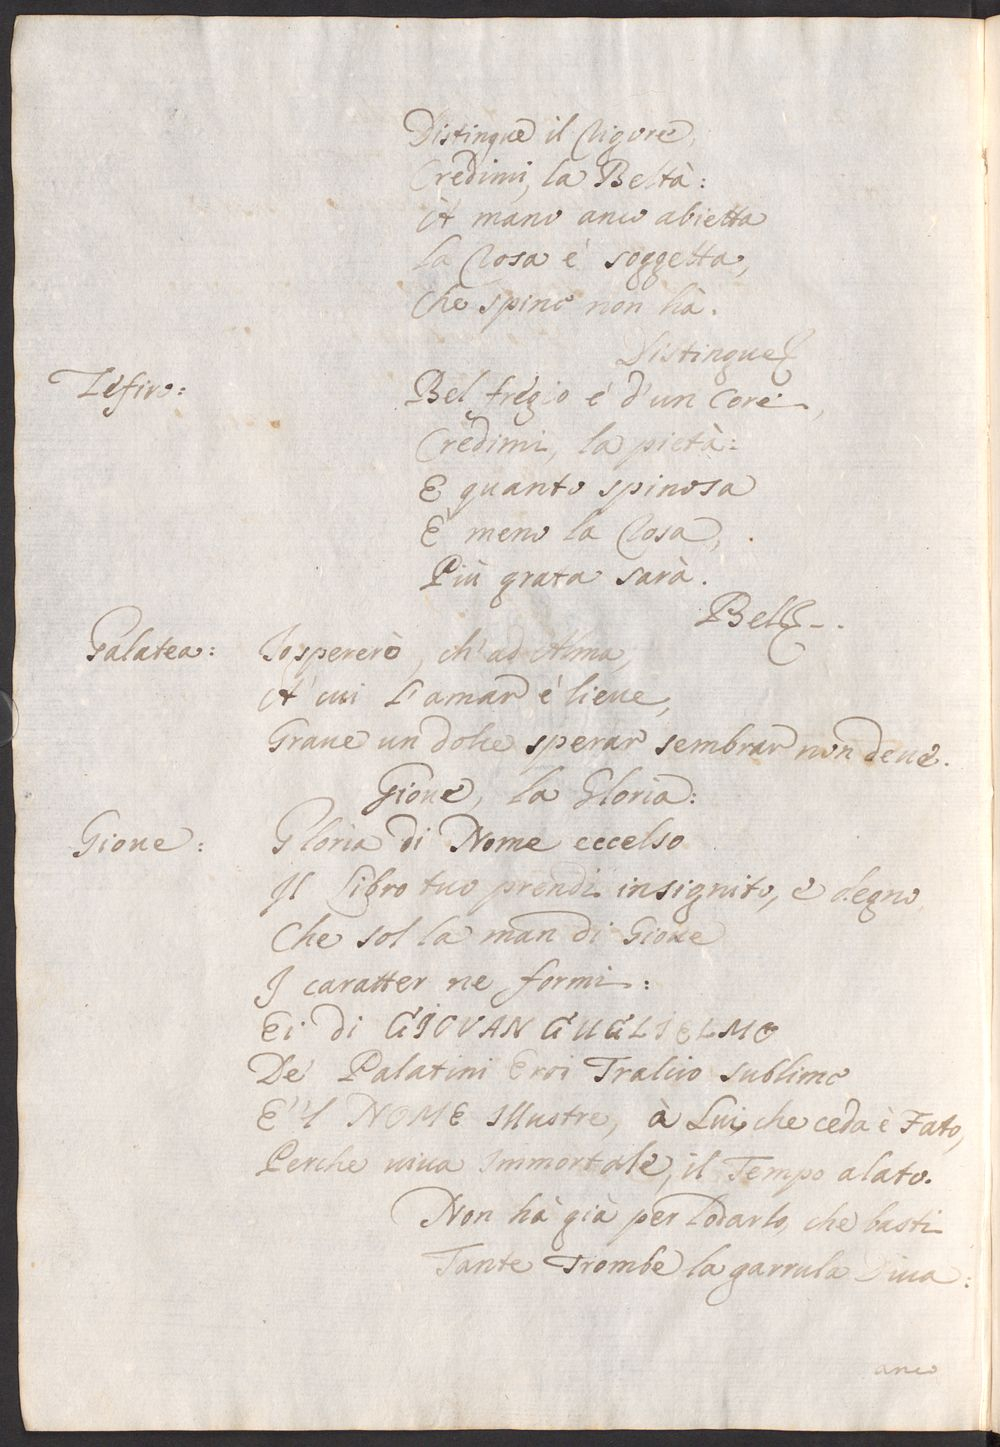 Distingue il Rigore,
Credimi, la Beltà:
A' mano anco abietta
La Rosa è soggetta,
Che spine non hà.
Distingue &
Zefiro: Bel fregio è d'un Core,
Credimi, la pietà:
E quanto spinosa
E' meno la Rosa,
Più grata sarà.
Bel &.
Galatea: Io spererò, ch' ad Alma,
A' cui l'amar è lieue,
Graue un dolce sperar sembrar non deue.
Gioue, la Gloria:
Gioue: Gloria di Nome eccelso
Il Libro tuo prendi insignito, e degno,
Che sol la man di Gioue
I caratter ne formi:
Ei di GIOVAN GUGLIELMO
De' Palatini Eroi Tralcio sublime
E' 'l NOME Illustre, à Lui che ceda è Fato,
Perche uiua Immortale, il Tempo alato.
Non hà già per Lodarlo, che basti
Tante Trombe la garrula Diua:
anco